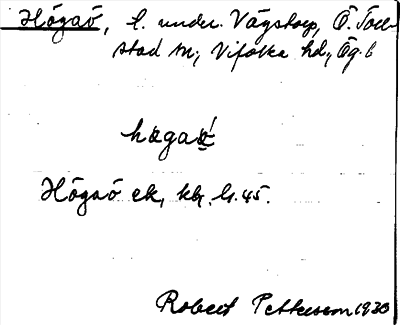 Högaö, l. under Vägstorp, Ö. Toll-
stad sn, Vifolka hd, Ög. l
høgaö́
Högaö ek, kbr. ls. 45.
Robert Pettersson 1930